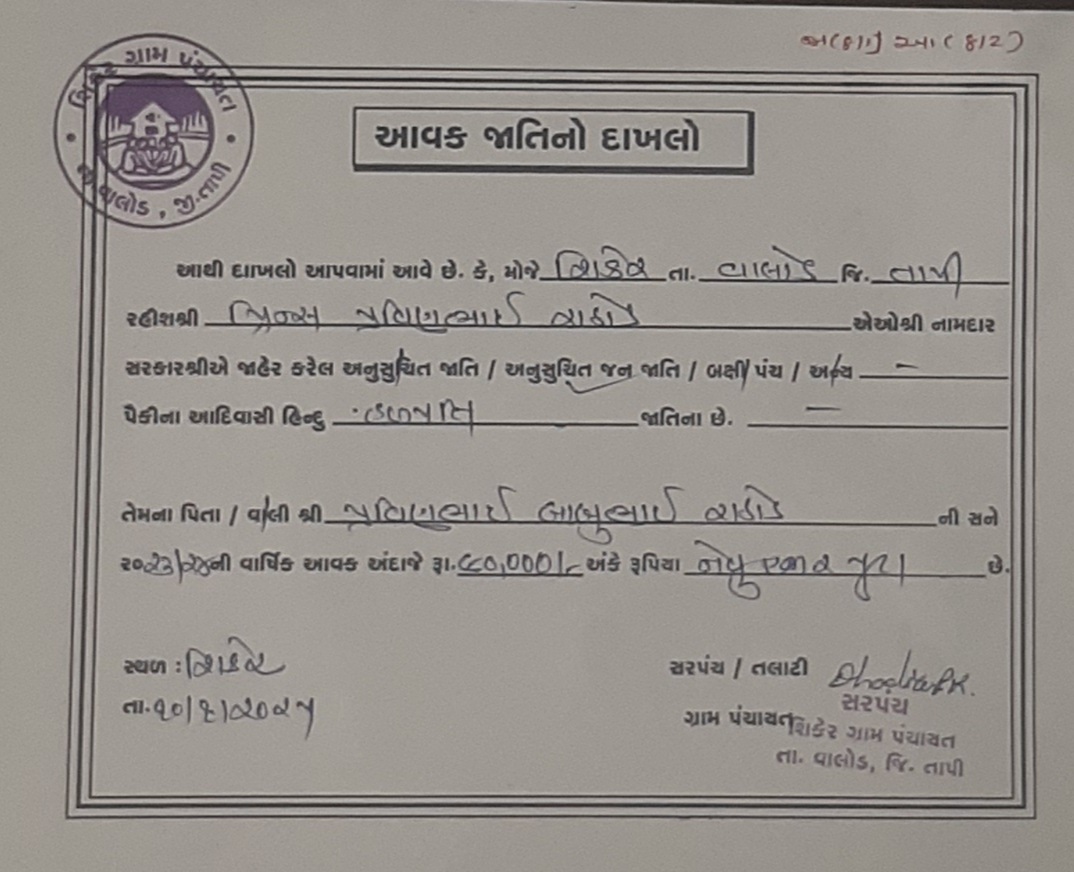 અ(૬/૧) આ(૬/૨)
શિકેર ગ્રામ પંચાયત
તા. વાલોડ, જી.તાપી
આવક જાતિનો દાખલો
આથી દાખલો આપવામાં આવે છે. કે, મોજે શિકેર તા. વાલોડ જિ. તાપી
રહીશશ્રી પ્રિન્સ પ્રવિણભાઈ રાઠોડ એઓશ્રી નામદાર
સરકારશ્રીએ જાહેર કરેલ અનુસુચિત જાતિ / અનુસુચિત જન જાતિ / બક્ષી પંચ / અન્ય —
પૈકીના આદિવાસી હિન્દુ હળપતિ જાતિના છે. —
તેમના પિતા / વાલી શ્રી પ્રવિણભાઈ બાબુભાઈ રાઠોડ ની સને
૨૦૨૩/૨૪ની વાર્ષિક આવક અંદાજે રૂા. ૯૦,૦૦૦/- અંકે રૂપિયા નેવુ હજાર પુરા છે.
સ્થળ : શિકેર
તા. ૧૦/૬/૨૦૨૫
સરપંચ / તલાટી
ગ્રામ પંચાયત
સરપંચ
શિકેર ગ્રામ પંચાયત
તા. વાલોડ, જિ. તાપી